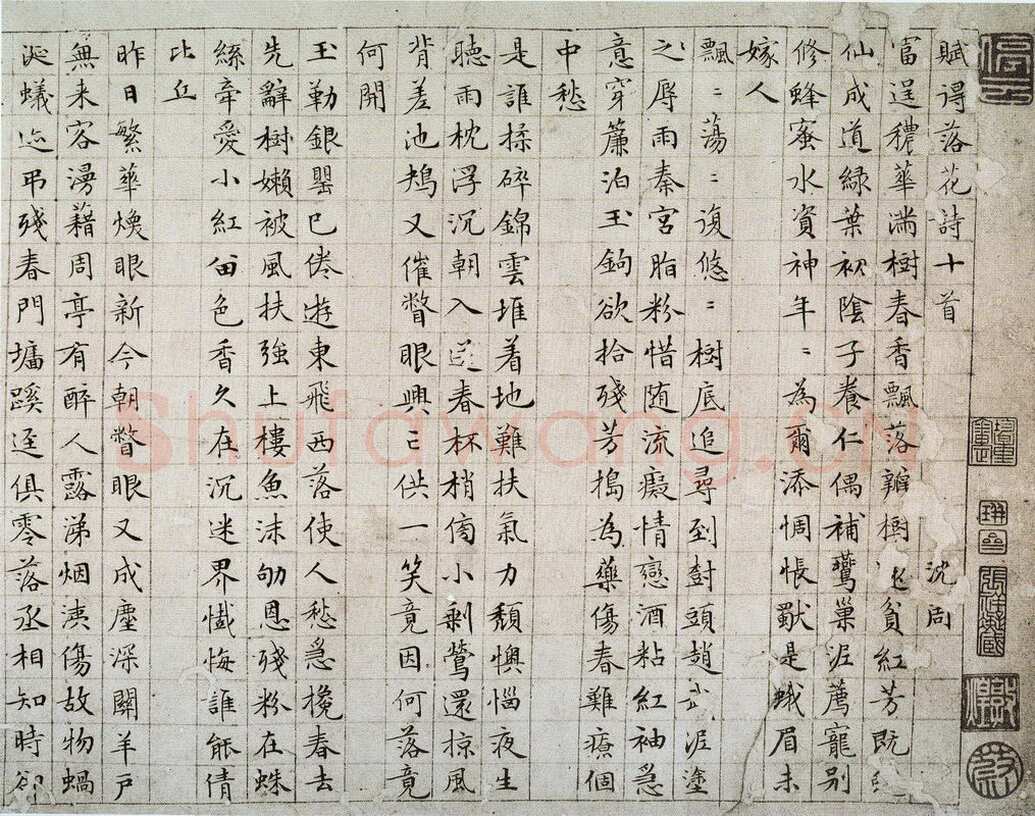 賦得落花詩十首 沈周
富逞穠華滿樹春香飄落瓣樹貧紅芳既
仙成道綠葉初陰子養仁偶補鶯巢泥薦寵別
修蜂蜜水資神年〻為爾添惆悵獸是蛾眉未
嫁人
飄〻蕩〻復悠〻樹底追尋到樹頭趙武泥塗
之辱雨秦宮脂粉惜随流癡情戀酒粘紅袖急
意穿簾泊玉鉤欲拾殘芳搗為藥傷春難療個
中愁
是誰揉碎錦雲堆着地難扶氣力頹懊惱夜生
聽雨枕浮沉朝入送春杯梢傍小剩鶯還掠風
背差池鴂又催瞥眼興亡供一笑竟因何落竟
何開
玉勒銀罌已倦遊東飛西落使人愁急攙春去
先辭樹嬾被風扶強上樓魚沫劬恩殘粉在蛛
絲牽愛小紅留色香久在沉迷界懺悔誰能倩
比丘
昨日繁華煥眼新今朝瞥眼又成塵深關羊戶
無来客漫藉周亭有醉人露涕烟洟傷故物蝸
涎蟻迹弔殘春門墻蹊逕俱零落丞相知時卻
Shufawang.cn